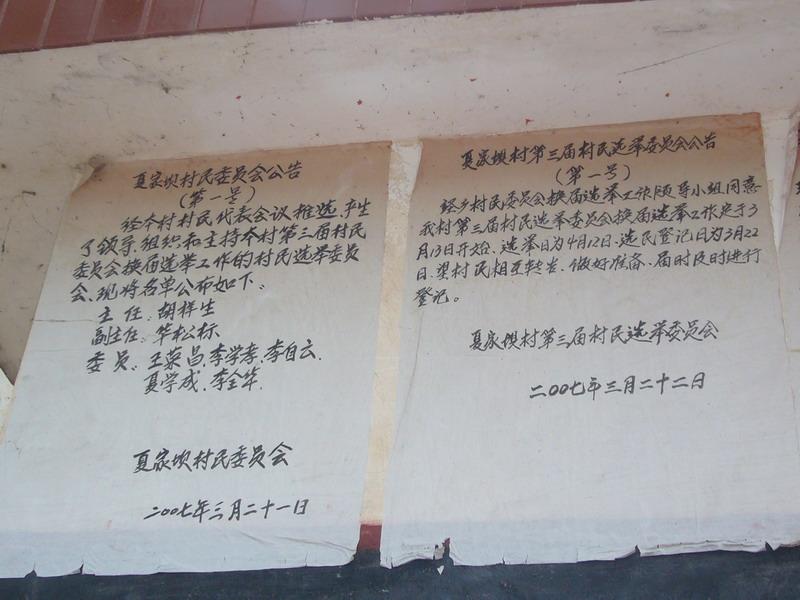 夏家坝村民委员会公告
（第一号）
经本村村民代表会议推选，产生
了领导、组织和主持本村第三届村民
委员会换届选举工作的村民选举委员
会、现将名单公布如下：
主任：胡祥生
副主任：华松标
委员：王荣昌、李学孝、李自云、
夏学成、李全华.
夏家坝村民委员会
二00七年三月二十一日
夏家坝村第三届村民选举委员会公告
（第一号）
经乡村民委员会换届选举工作领导小组同意
我村第三届村民选举委员会换届选举工作定于3
月13日开始、选举日为4月12日、选民登记日为3月22
日、望村民相互转告、做好准备、届时及时进行
登记。
夏家坝村第三届村民选举委员会
二00七年三月二十二日